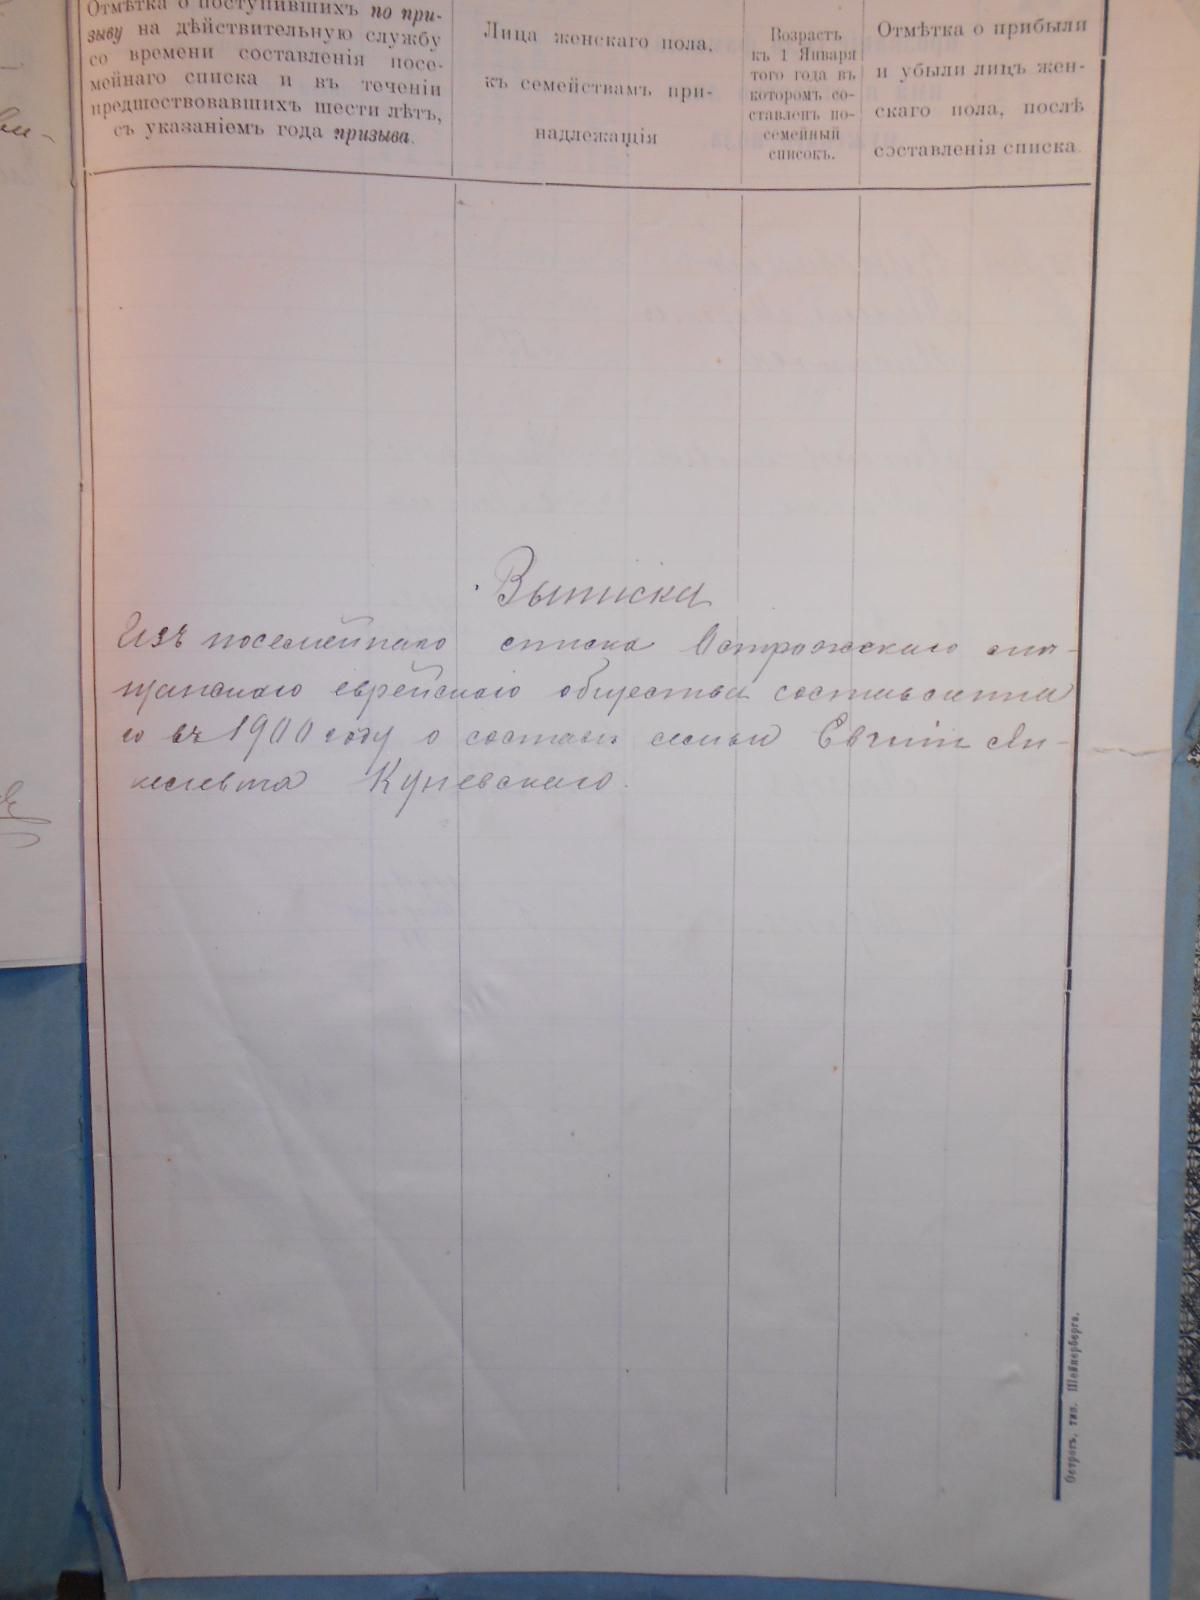 Отмѣтка о поступившихъ по при-
зыву на дѣйствительную службу
со времени составленія посе-
мейнаго списка и въ теченіи
предшествовавшихъ шести лѣтъ,
съ указаніемъ года призыва.
Лица женскаго пола,
къ семействамъ при-
надлежащія
Возрастъ
къ 1 Января
того года въ
которомъ со-
ставленъ по-
семейный
списокъ.
Отмѣтка о прибыли
и убыли лицъ жен-
скаго пола, послѣ
составленія списка.
Выписка
Изъ посемейнаго списка Острожскаго мѣ-
щанскаго еврейскаго общества составленна
го въ 1900 году о составѣ семьи
Куневскаго.
Острогъ, тип. Шейнберга.